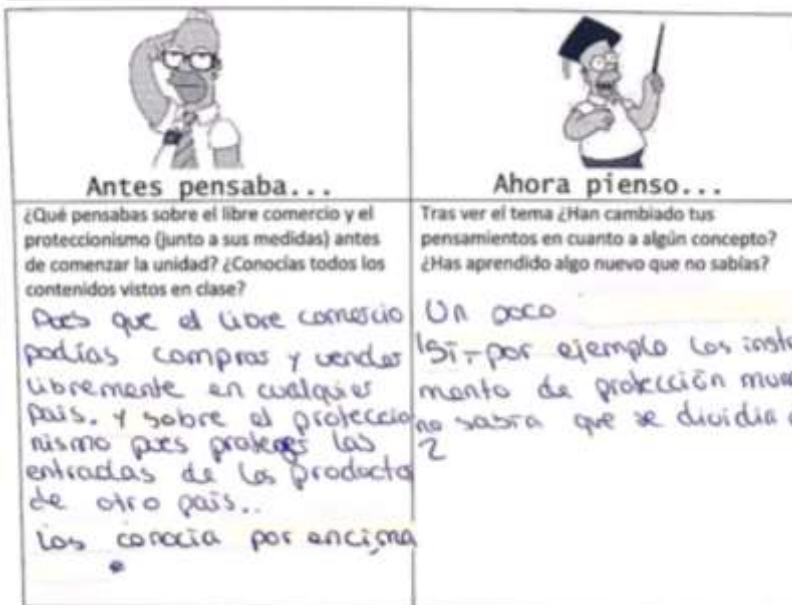 Antes pensaba...
¿Qué pensabas sobre el libre comercio y el
proteccionismo (junto a sus medidas) antes
de comenzar la unidad? ¿Conocías todos los
contenidos vistos en clase?
Pues que el libre comercio
podías comprar y vender
libremente en cualquier
país. y sobre el proteccio
nismo pues proteger las
entradas de los producto
de otro país..
Los conocía por encima
Ahora pienso...
Tras ver el tema ¿Han cambiado tus
pensamientos en cuanto a algún concepto?
¿Has aprendido algo nuevo que no sabías?
Un poco
Sí, por ejemplo los instr
mento de protección
no sabía que se dividia
2